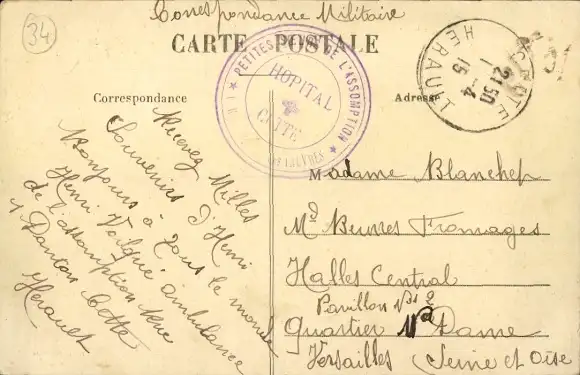 34
Correspondance Militaire
CARTE POSTALE
PETITES DE L'ASSOMPTION
HOPITAL
CETTE
Correspondance
Adresse
CETTE
21 50
1 - 4
15
HERAULT
Recevez Milles
Souvenirs d'Henri
Bonjours à tous le monde
Henri ambulance
de l'assomption Rue
Danton Cette
Herault
Madame Blanchep
Md Beurres Fromages
Halles Central
Pavillon No 2
Quartier Nd Dame
Versailles Seine et Oise